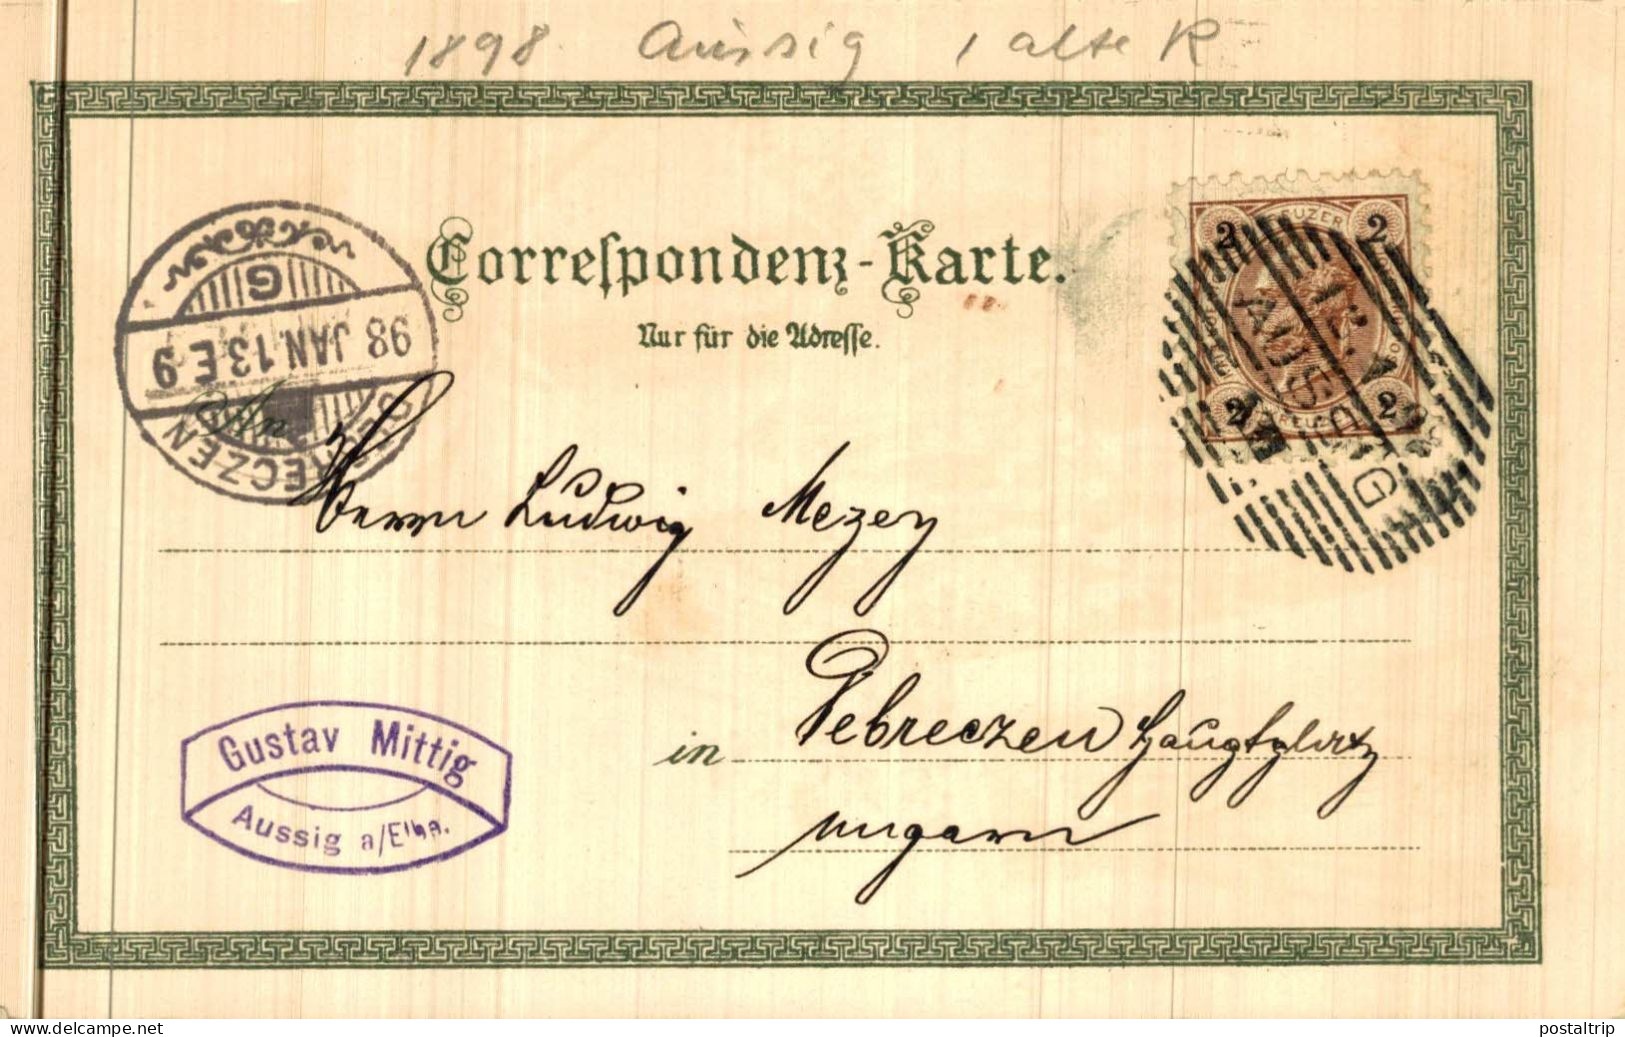 1898 Aussig 1 alte K
Correspondenz-Karte.
Nur für die Adresse.
2 KREUZER 2
2 2
AUSSIG
12. 1
G
98 JAN. 13 E 9
DEBRECZEN
An
Herrn Ludwig Mezey
in Debreczen Hauptplatz
Ungarn
Gustav Mittig
Aussig a/Elbe.
postaltrip
delcampe.net Copyright © - www.delcampe.net